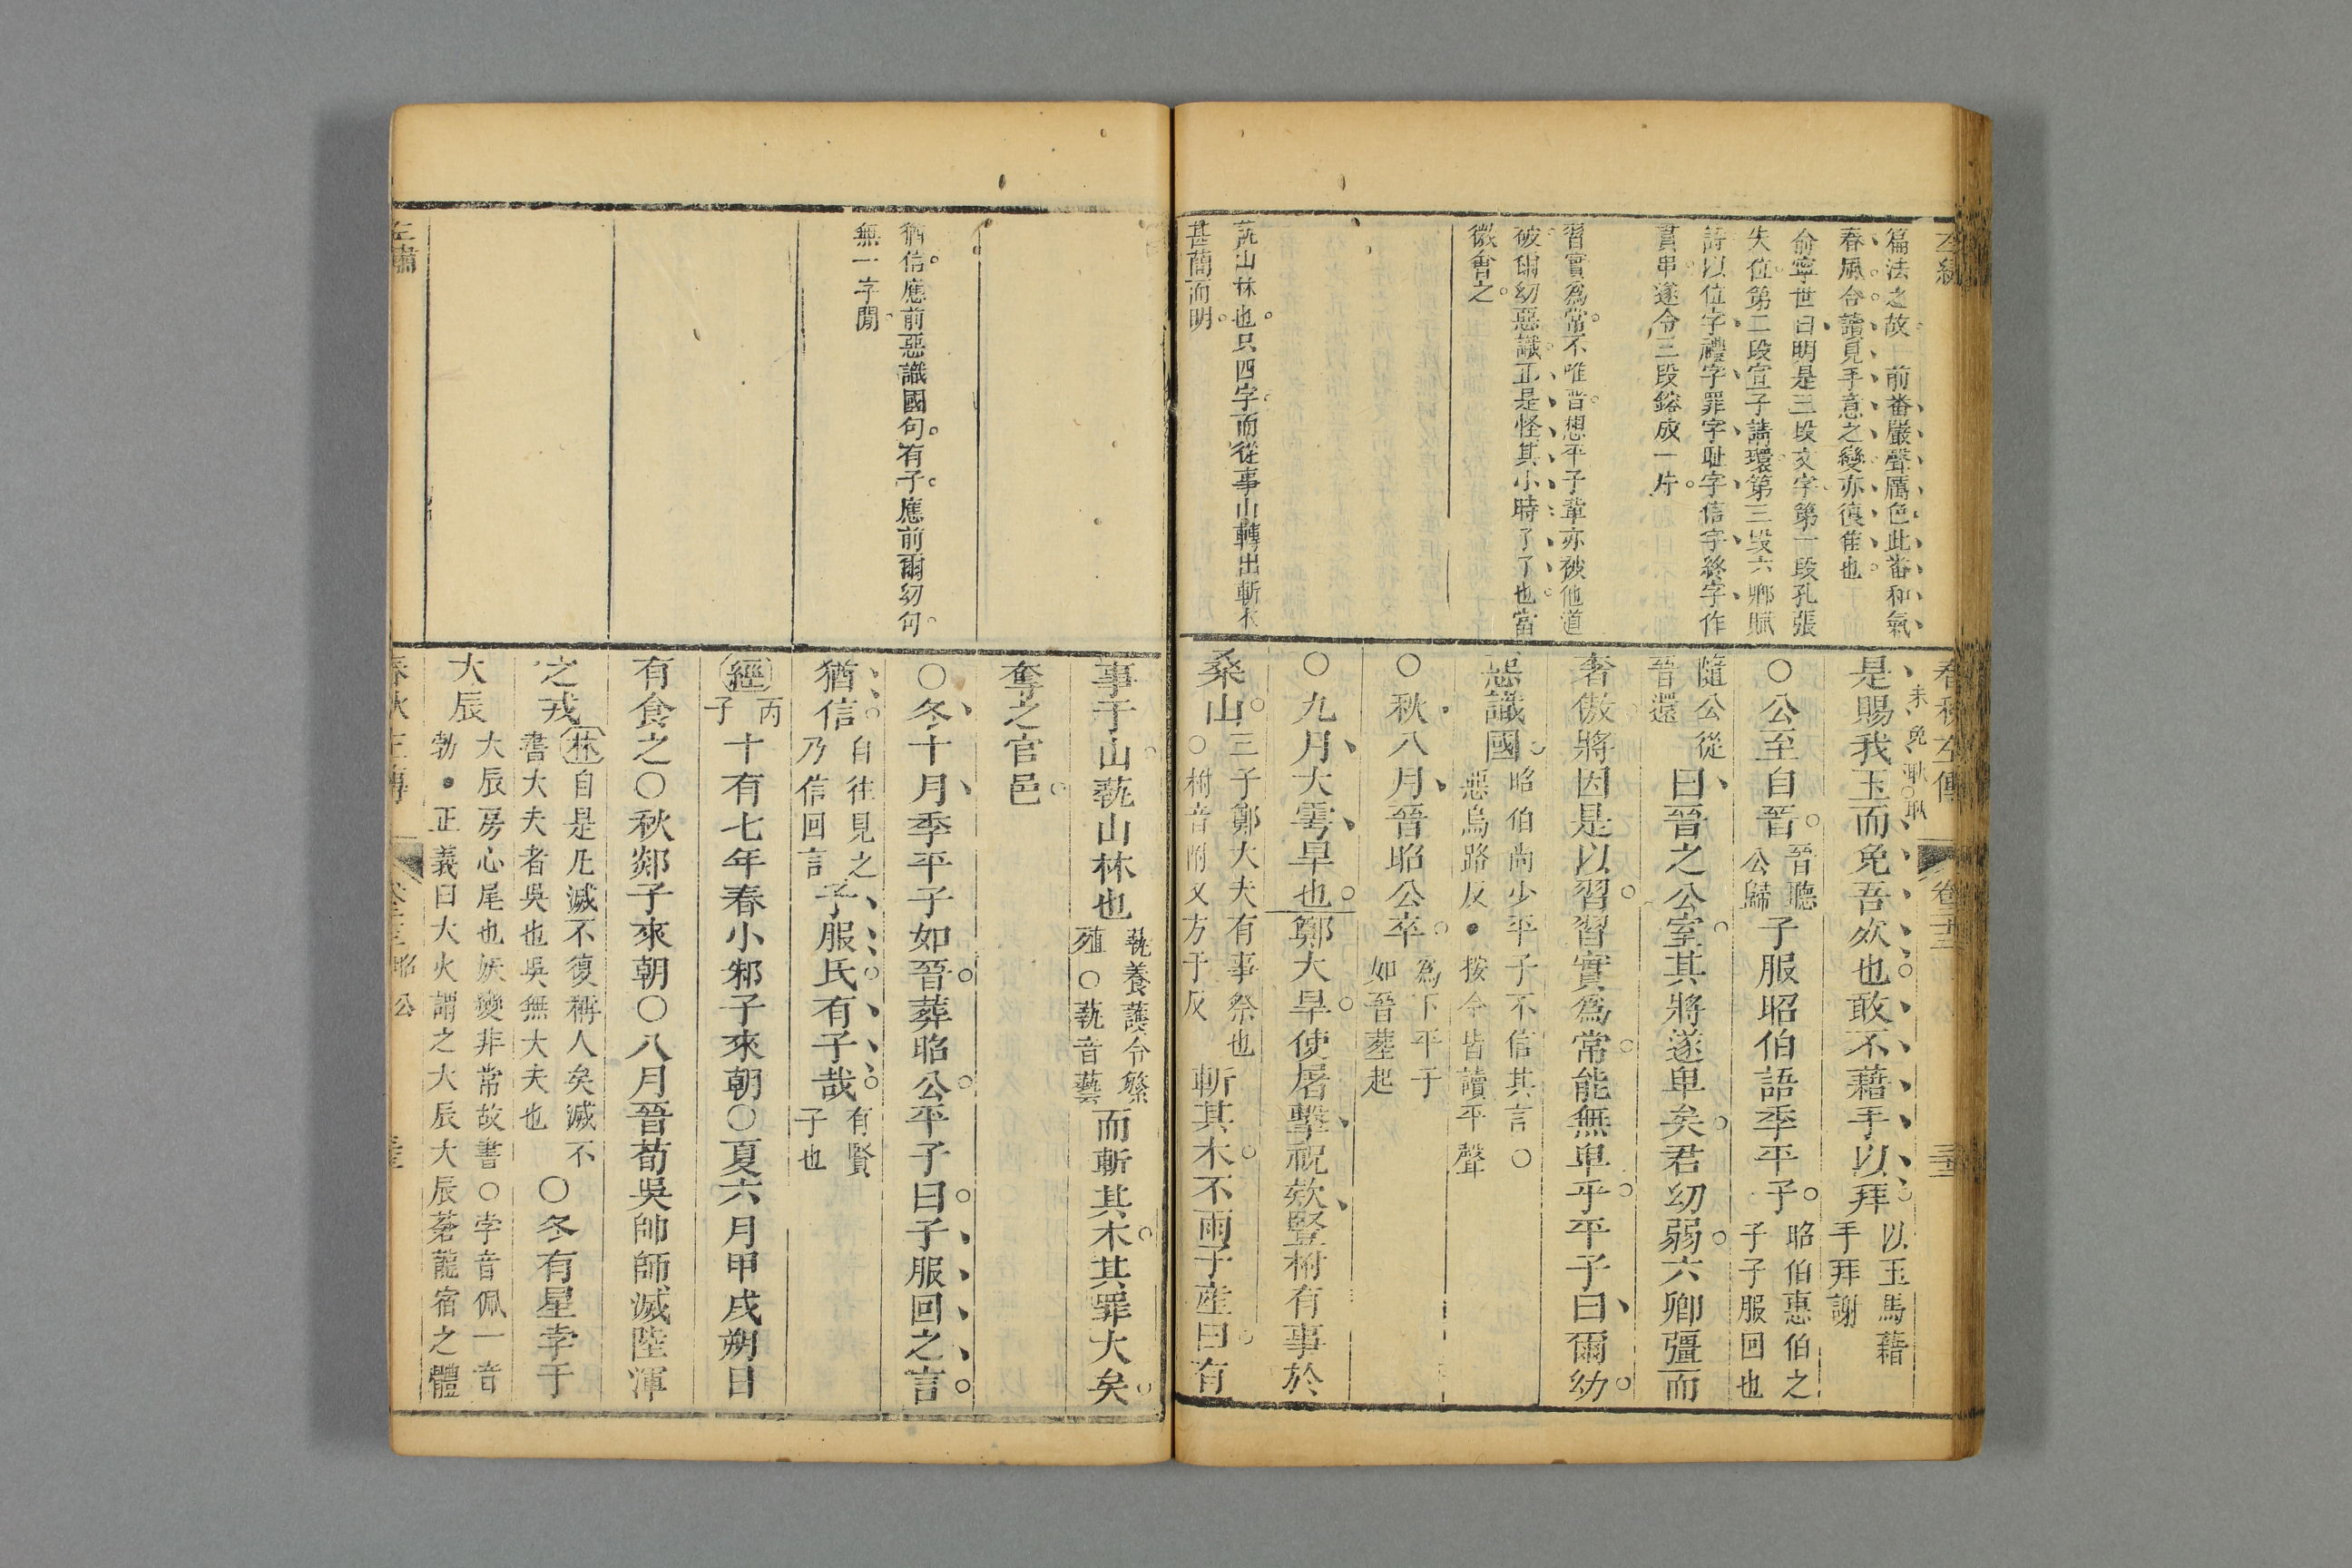 春秋左傳
卷二十三
篇法之故一前番嚴聲厲色此番和氣
春風合讀見手意之變亦復佳也
俞寧世曰明是三段文字第一段孔張
失位第二段宣子請環第三段六鄉賦
詩以位字禮字罪字耻字信字終字作
貫串遂令三段鎔成一片
習實為常不唯晋想平子輩亦被他道
破爾幼惡識正是怪其小時了了也當
微會之
蓺山林也只四字而從事山轉出斬木
甚蕳而明
未免耿耿
是賜我玉而免吾死也敢不藉手以拜
以玉馬藉
手拜謝
○公至自晉
晉聽
公歸
子服昭伯語季平子
昭伯惠伯之
子子服回也
隨公從
晉還
曰晉之公室其將遂卑矣君幼弱六卿彊而
奢傲將因是以習習實爲常能無卑乎平子曰爾幼
惡識國
昭伯尚少平子不信其言○
惡烏路反●按今皆讀平聲
○秋八月晉昭公卒
為下平子
如晉葬起
○九月大雩旱也鄭大旱使屠擊祝款豎柎有事於
桑山
三子鄭大夫有事祭也
○柎音附又方于反
斬其木不雨子産曰有
事于山蓺山林也
蓺養護令繁
殖○蓺音藝
而斬其木其罪大矣
奪之官邑
○冬十月季平子如晉葬昭公平子曰子服回之言
猶信
自往見之
乃信回言
子服氏有子哉
有賢
子也
猶信應前惡識國句有子應前爾幼句
無一字閒
經
丙
子
十有七年春小邾子來朝○夏六月甲戌朔日
有食之○秋郯子來朝○八月晉荀吳帥師滅陸渾
之戎
林自是凡滅不復稱人矣滅不
書大夫者吳也吳無大夫也
○冬有星孛于
大辰
大辰房心尾也妖變非常故書○孛音佩一音
勃●正義曰大火謂之大辰大辰蒼龍宿之體